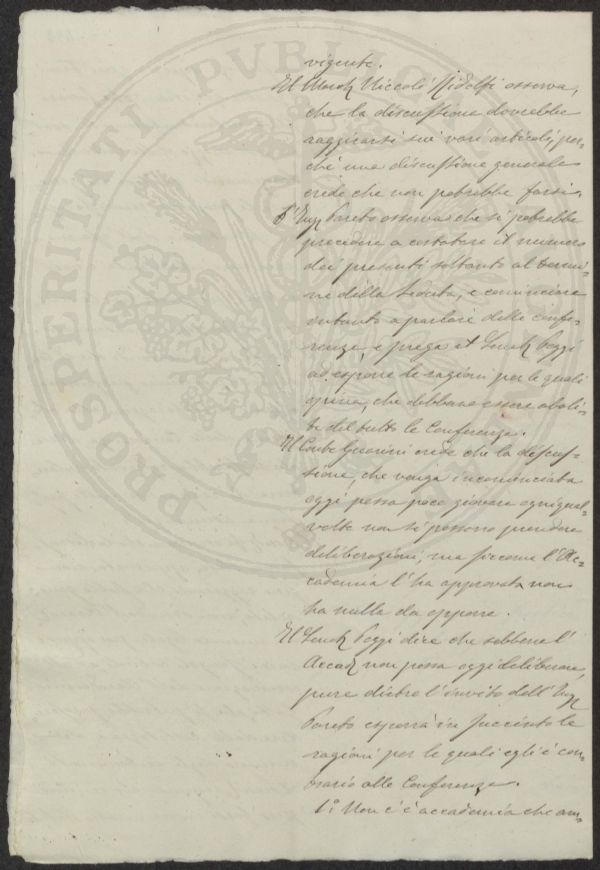 PROSPERITATI PVBLICAE
vigente.
Il March Niccolò Ridolfi osserva,
che la discussione dovrebbe
raggirarsi sui varj articoli, per-
chè una discussione generale
crede che non potrebbe farsi.
L'Ing Pareto osserva che si potrebbe
procedere a constatare il numero
dei presenti soltanto al termi-
ne della seduta, e cominciare
intanto a parlare delle confe-
renze, e prega il Poggi
ad esporre le ragioni per le quali
opina, che debbano essere aboli-
te del tutto le Conferenze.
Il Conte Guarini crede che la discus-
sione, che venga incominciata
oggi possa poco giovare ogniqual-
volta non si possono prendere
deliberazioni, ma siccome l'Ac-
cademia l'ha approvata non
ha nulla da opporre.
Il Poggi dice che sebbene l'
Accad non possa oggi deliberare,
pure dietro l'invito dell'Ing
Pareto esporrà in succinto le
ragioni per le quali egli è con-
trario alle Conferenze.
1.° Non c'è accademia che am-